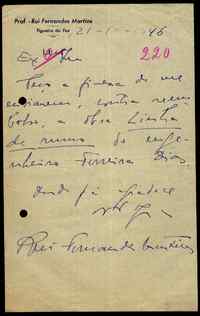 Prof. Rui Fernandes Martins
Figueira da Foz 21-1-946
Exmo Snr
220
Peço a fineza de me
enviarem, contra reem-
bolso, a obra Linha
de rumo do enge-
nheiro Ferreira Dias.
Desde já agradece
Rui Fernandes Martins